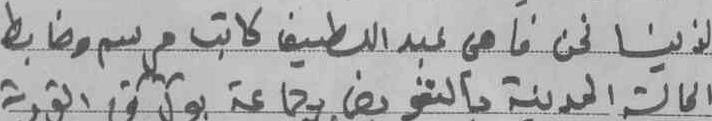 لدينا نحن فاهي عبد اللطيف كاتب مرسم وضابط
الحالة المدنية بالتفويض بجماعة بوك القرية